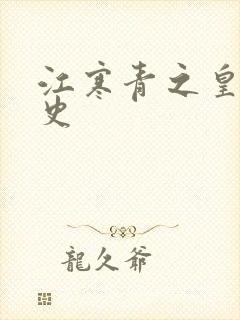 江寒青之皇
史
龍久爺